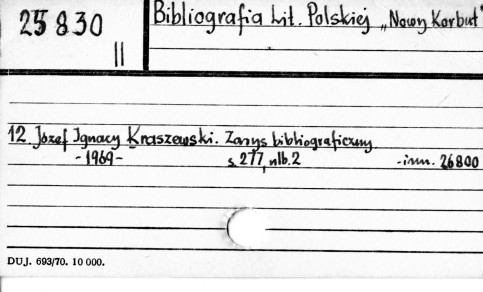 25830 Bibliografia Lit. Polskiej „Nowy Korbut"
II
12. Józef Ignacy Kraszewski. Zarys bibliograficzny
- 1969 - s. 277, nlb. 2 - inw. 26800
DUJ. 693/70. 10 000.